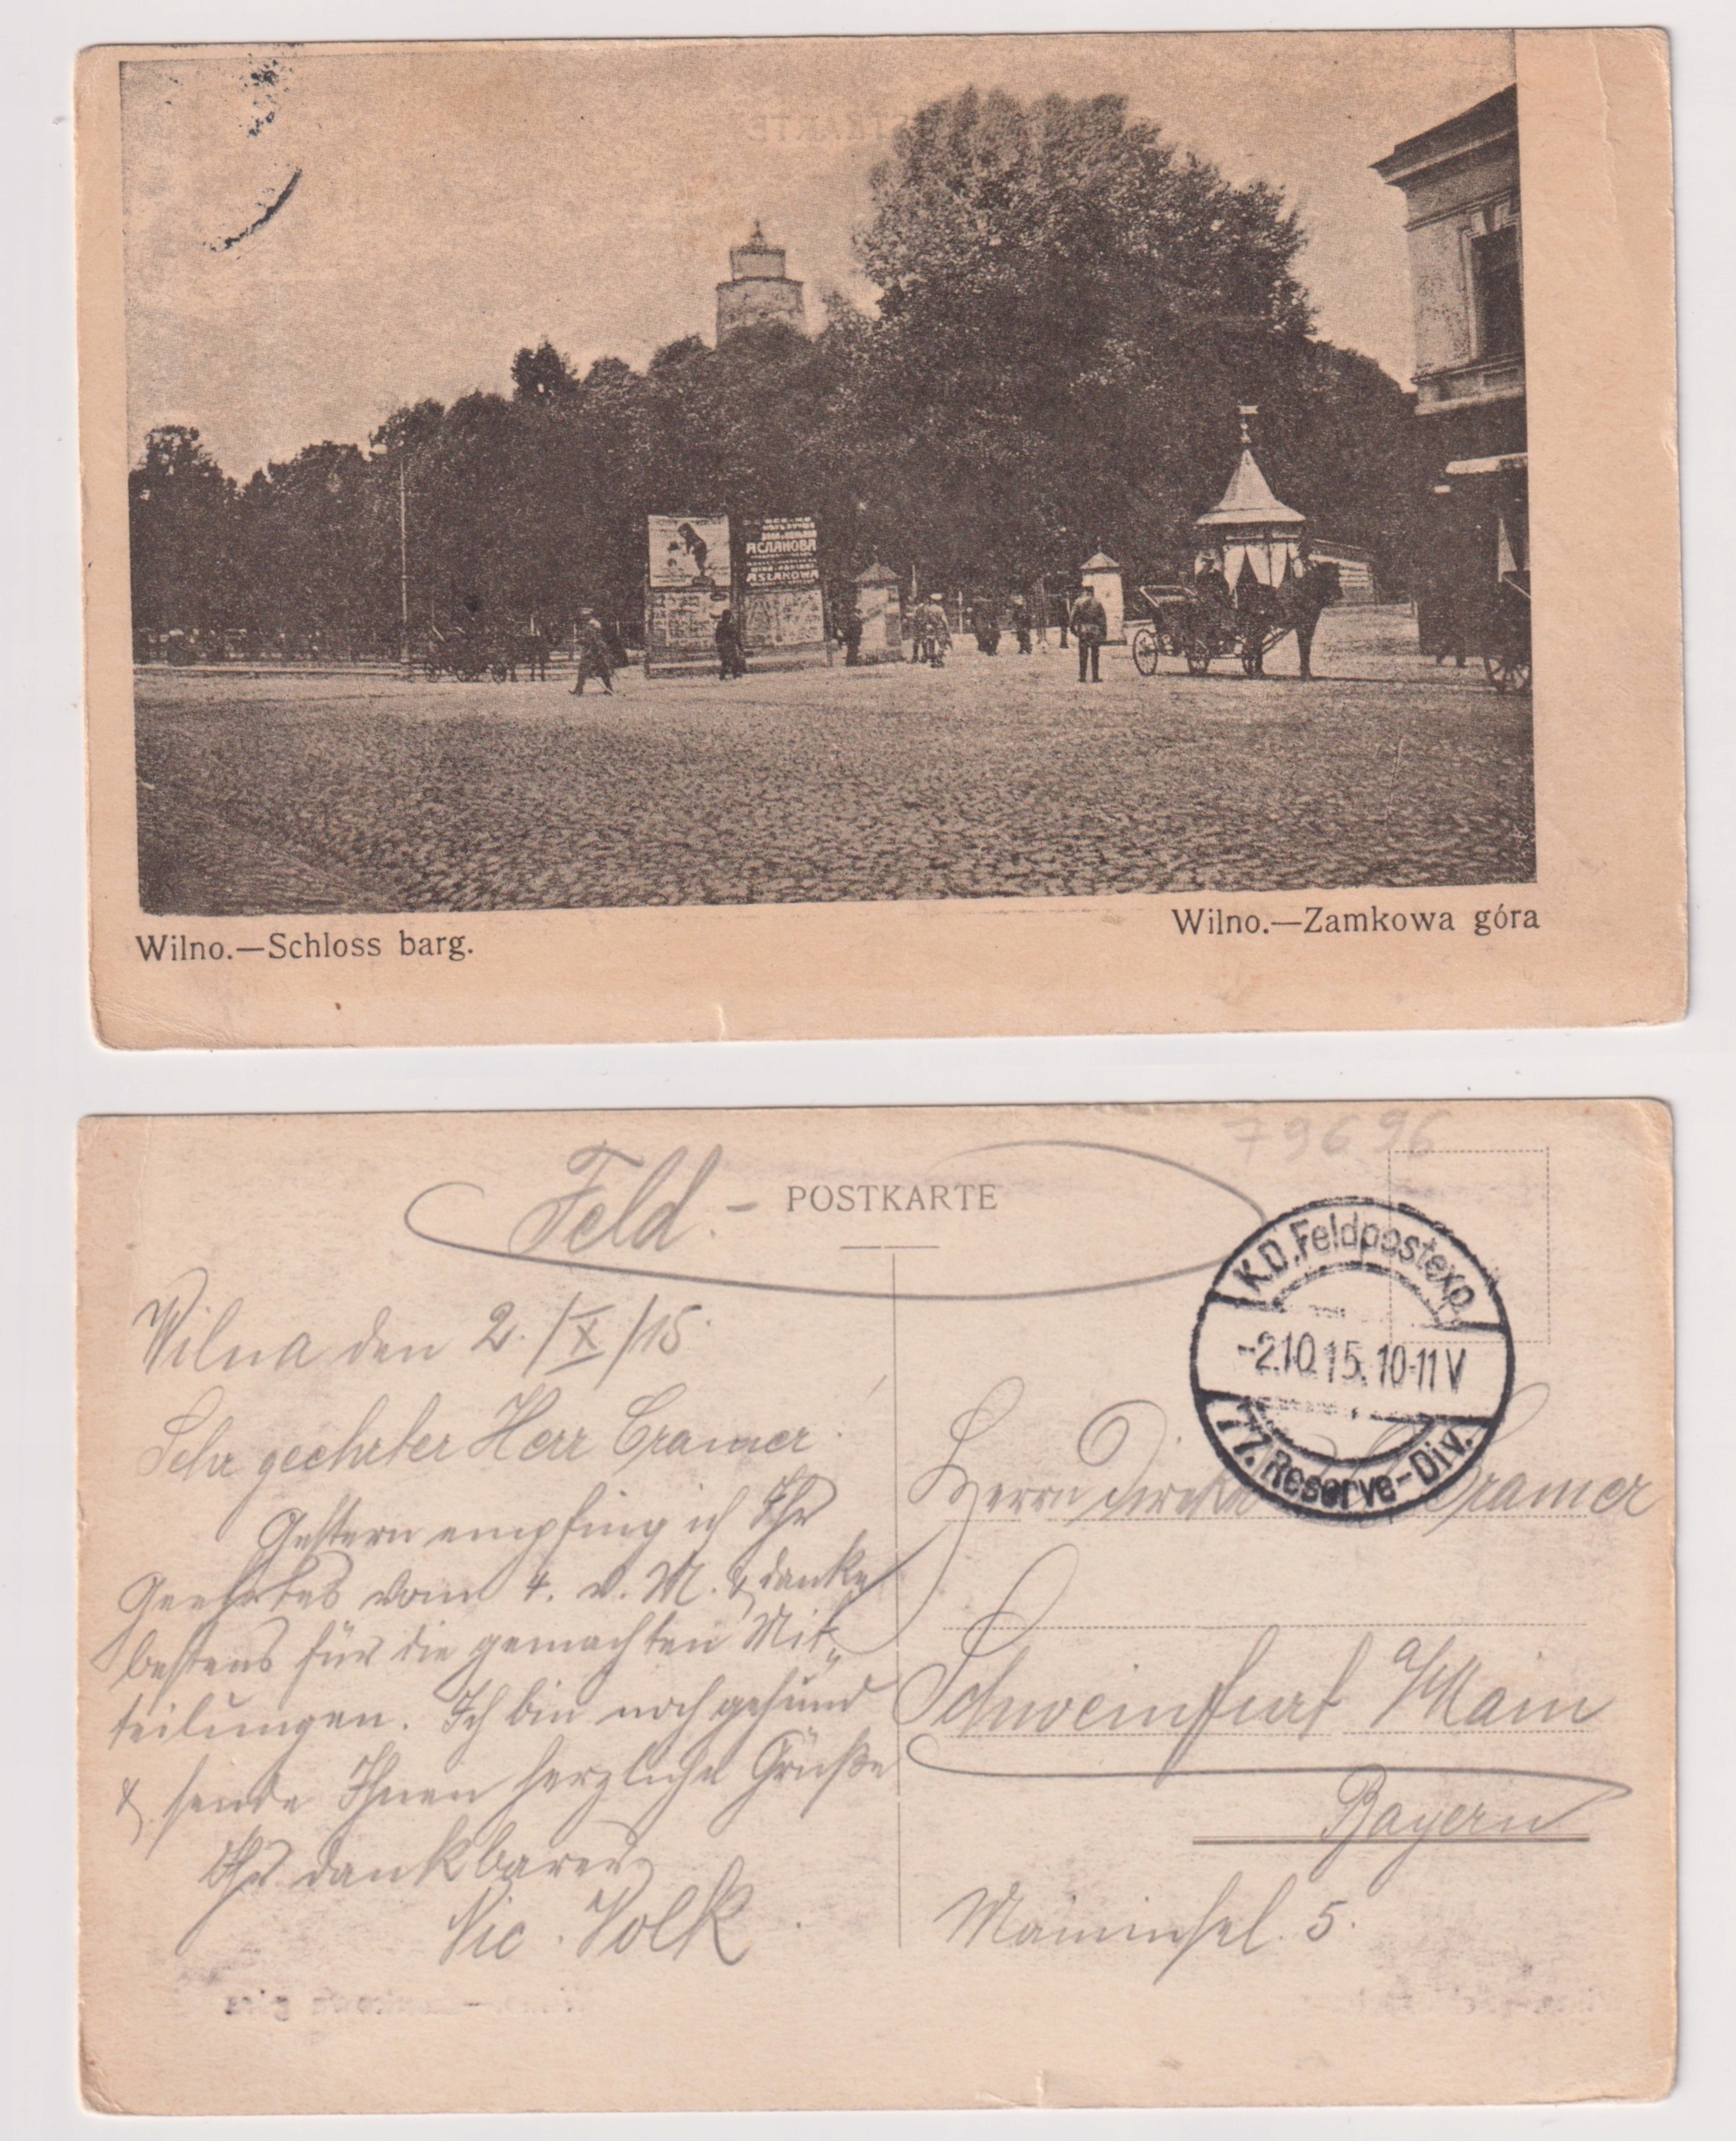 АСЛАНОВА
ASŁANOWA
Wilno.—Schloss barg.
Wilno.—Zamkowa góra
79696
Feld.- POSTKARTE
Wilna den 2./X/15.
Sehr geehrter Herr Cramer!
Gestern empfing ich Ihr
Geehrtes vom 4. v. M. & danke
bestens für die gemachten Mit„
teilungen. Ich bin noch gesund
& sende Ihnen herzliche Grüße
Ihr dankbarer
Nic. Volk.
K.D. Feldpostexp.
-2.10.15. 10-11 V
77. Reserve-Div.
Herrn Direktor Cramer
Schweinfurt Main
Bayern
Maininsel. 5.